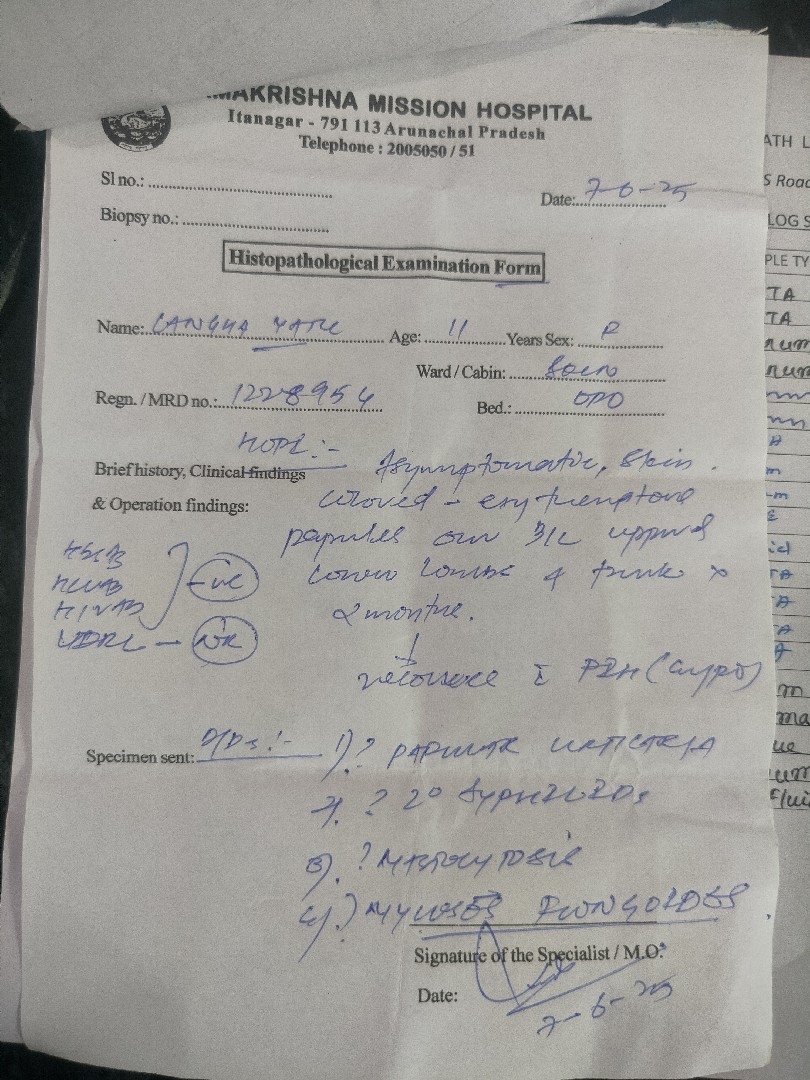 MAKRISHNA MISSION HOSPITAL
Itanagar - 791 113 Arunachal Pradesh
Telephone : 2005050 / 51
Sl no.:
Date: 7-6-25
Biopsy no.:
Histopathological Examination Form
Name: Age: 11 Years Sex: F
Ward / Cabin:
Regn. / MRD no.: 1228954 Bed.: OPD
HOPI :-
Brief history, Clinical findings Asymptomatic, skin
& Operation findings: coloured - erythematous
papules over B/L upper &
lower limbs & trunk x
2 months.
HBsAB
HCVAB
HIVAB
-ve
VDRL - NR
↓
PIH (hypo)
Specimen sent: D/Ds :- 1) ? PAPULAR URTICARIA
2). ? 2° SYPHILIDS
3). ? MASTOCYTOSIS
4).) MYCOSES FUNGOIDES
Signature of the Specialist / M.O.
Date: 7-6-25
ATH L
S Road
LOG S
PLE TY
TA
TA
TA